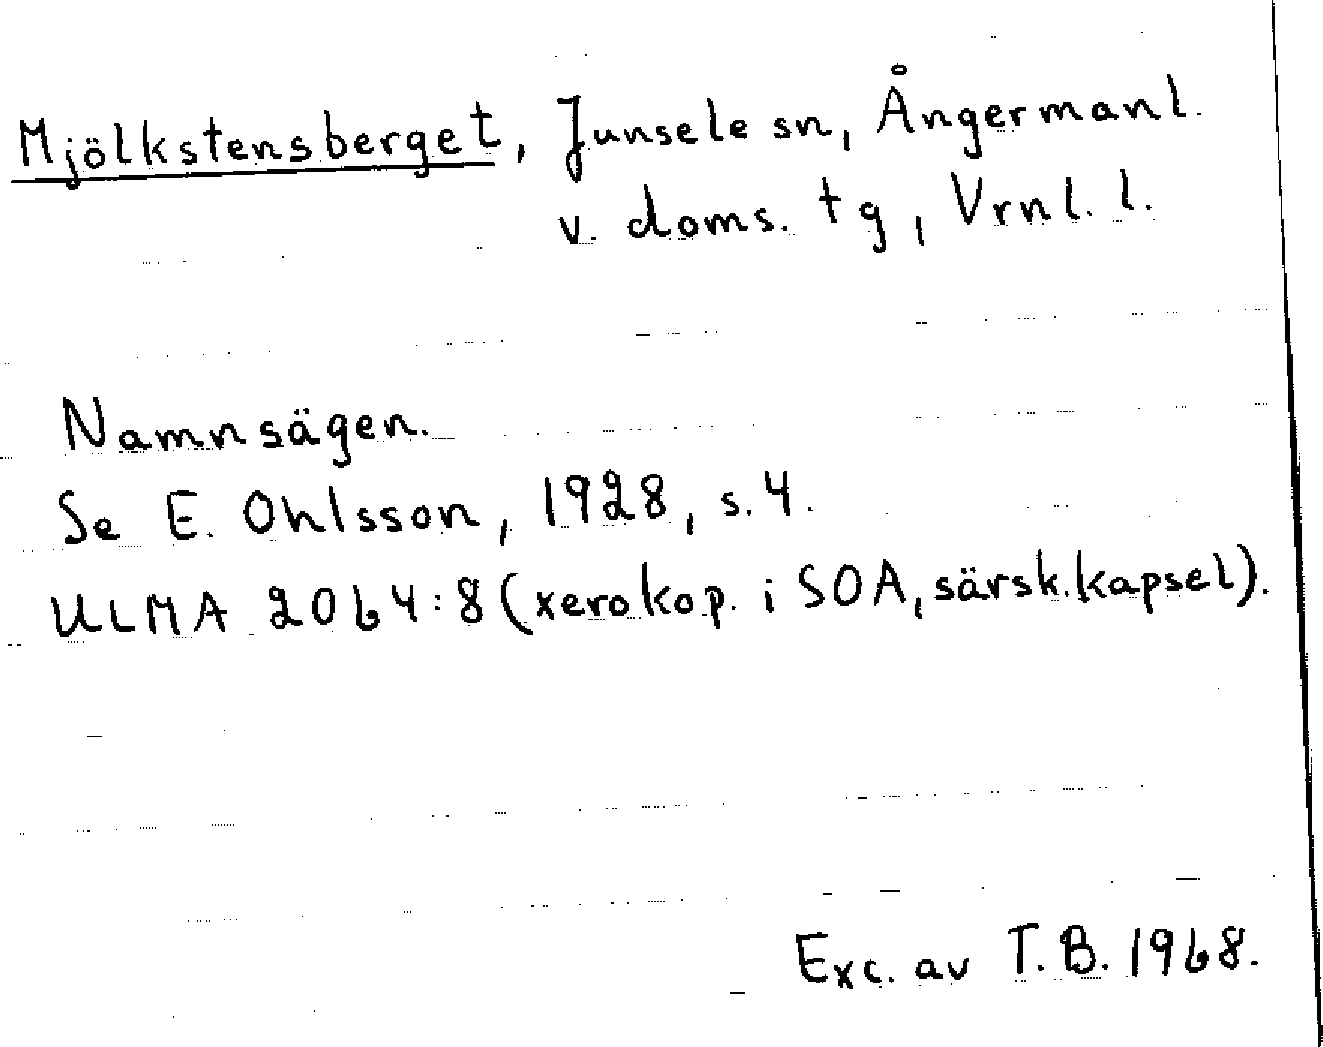 Mjölkstensberget, Junsele sn, Ångermanl.
v. doms. tg, Vrnl. l.
Namnsägen.
Se E. Ohlsson, 1928, s. 4.
ULMA 2064:8 (xerokop. i SOA, särsk. kapsel).
Exc. av T. B. 1968.